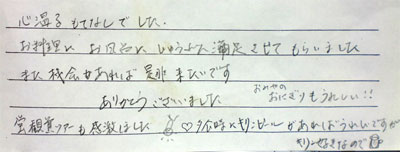 心温まるもてなしでした。
お料理に お風呂に じゅうぶん 満足させてもらいました
また機会があれば 是非 来たいです
ありがとうございました
おみやの
おにぎりもうれしい!!
ツアーも感激しました ♡夕食時にキリンビールがあればうれしいですが
キリン好きなので